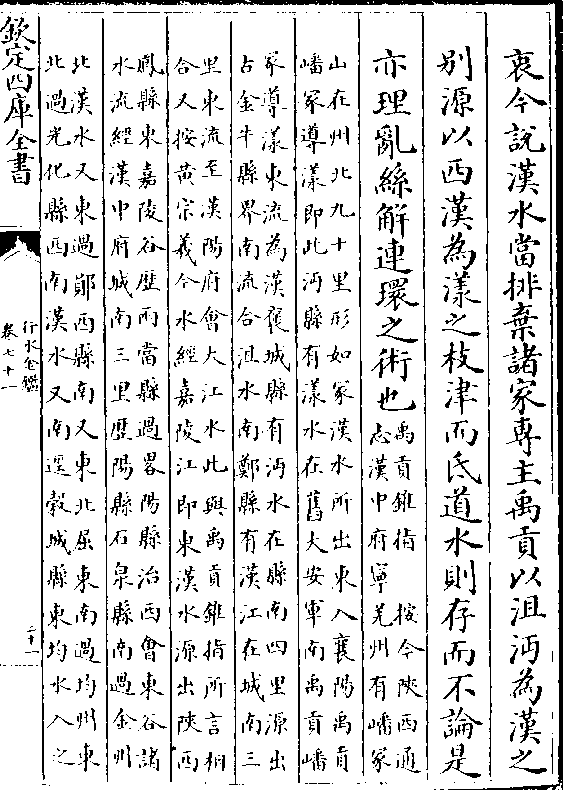 衷今說漢水當排棄諸家專主禹貢以沮沔為漢之
别源以西漢為漾之枝津而氐道水則存而不論是
亦理亂絲解連環之術也
禹貢錐指 按今陝西通
志漢中府寧羌州有嶓冢
山在州北九十里形如冢漢水所出東入襄陽禹貢
嶓冢導漾即此沔縣有漾水在舊大安軍南禹貢嶓
冢導漾東流為漢褒城縣有沔水在縣南四里源出
占金牛縣界南流合沮水南鄭縣有漢江在城南三
里東流至漢陽府會大江水此與禹貢錐指所言相
合又按黃宗羲今水經嘉陵江即東漢水源出陝西
鳳縣東嘉陵谷歷兩當縣過畧陽縣治西會東谷諸
水流經漢中府城南三里歷陽縣石泉縣南過金州
北漢水又東過鄖西縣南又東北屈東南過均州東
北過光化縣西南漢水又南逕穀城縣東均水入之
欽定四庫全書
行水金鑑
卷七十一
二十一